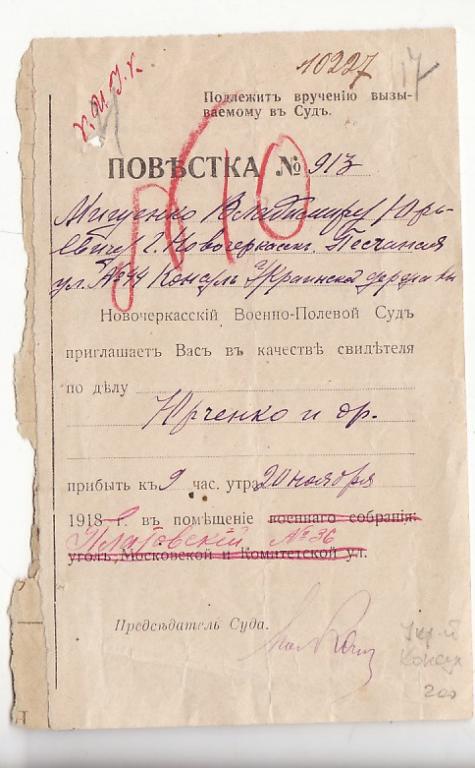 10227
17
Подлежитъ врученію вызы-
ваемому въ Судъ.
ПОВѢСТКА № 913
Мищенко Владимиру Юрь-
евичу г. Новочеркасск. Песчаная
ул. № 44 Консулъ Украинской державы
Новочеркасскій Военно-Полевой Судъ
приглашаетъ Васъ въ качествѣ свидѣтеля
по дѣлу
Юрченко и др.
прибыть къ 9 час. утра 20 ноября
1918 г. въ помѣщеніе военнаго собранія:
Платовскій № 36
уголъ Московской и Комитетской ул.
Предсѣдатель Суда.
Укр-й
Консул
200